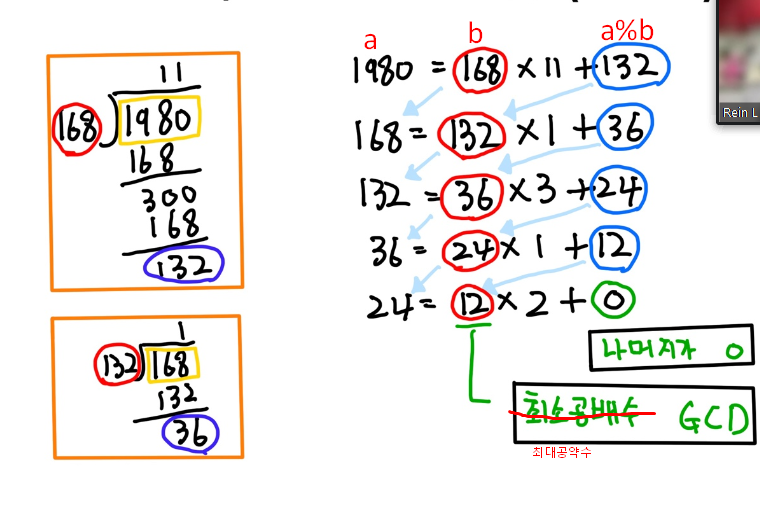 11
168 1980
168
300
168
132
1
132 168
132
36
a b a%b
1980 = 168 × 11 + 132
168 = 132 × 1 + 36
132 = 36 × 3 + 24
36 = 24 × 1 + 12
24 = 12 × 2 + 0
나머지가 0
최소공배수 GCD
최대공약수
Rein L